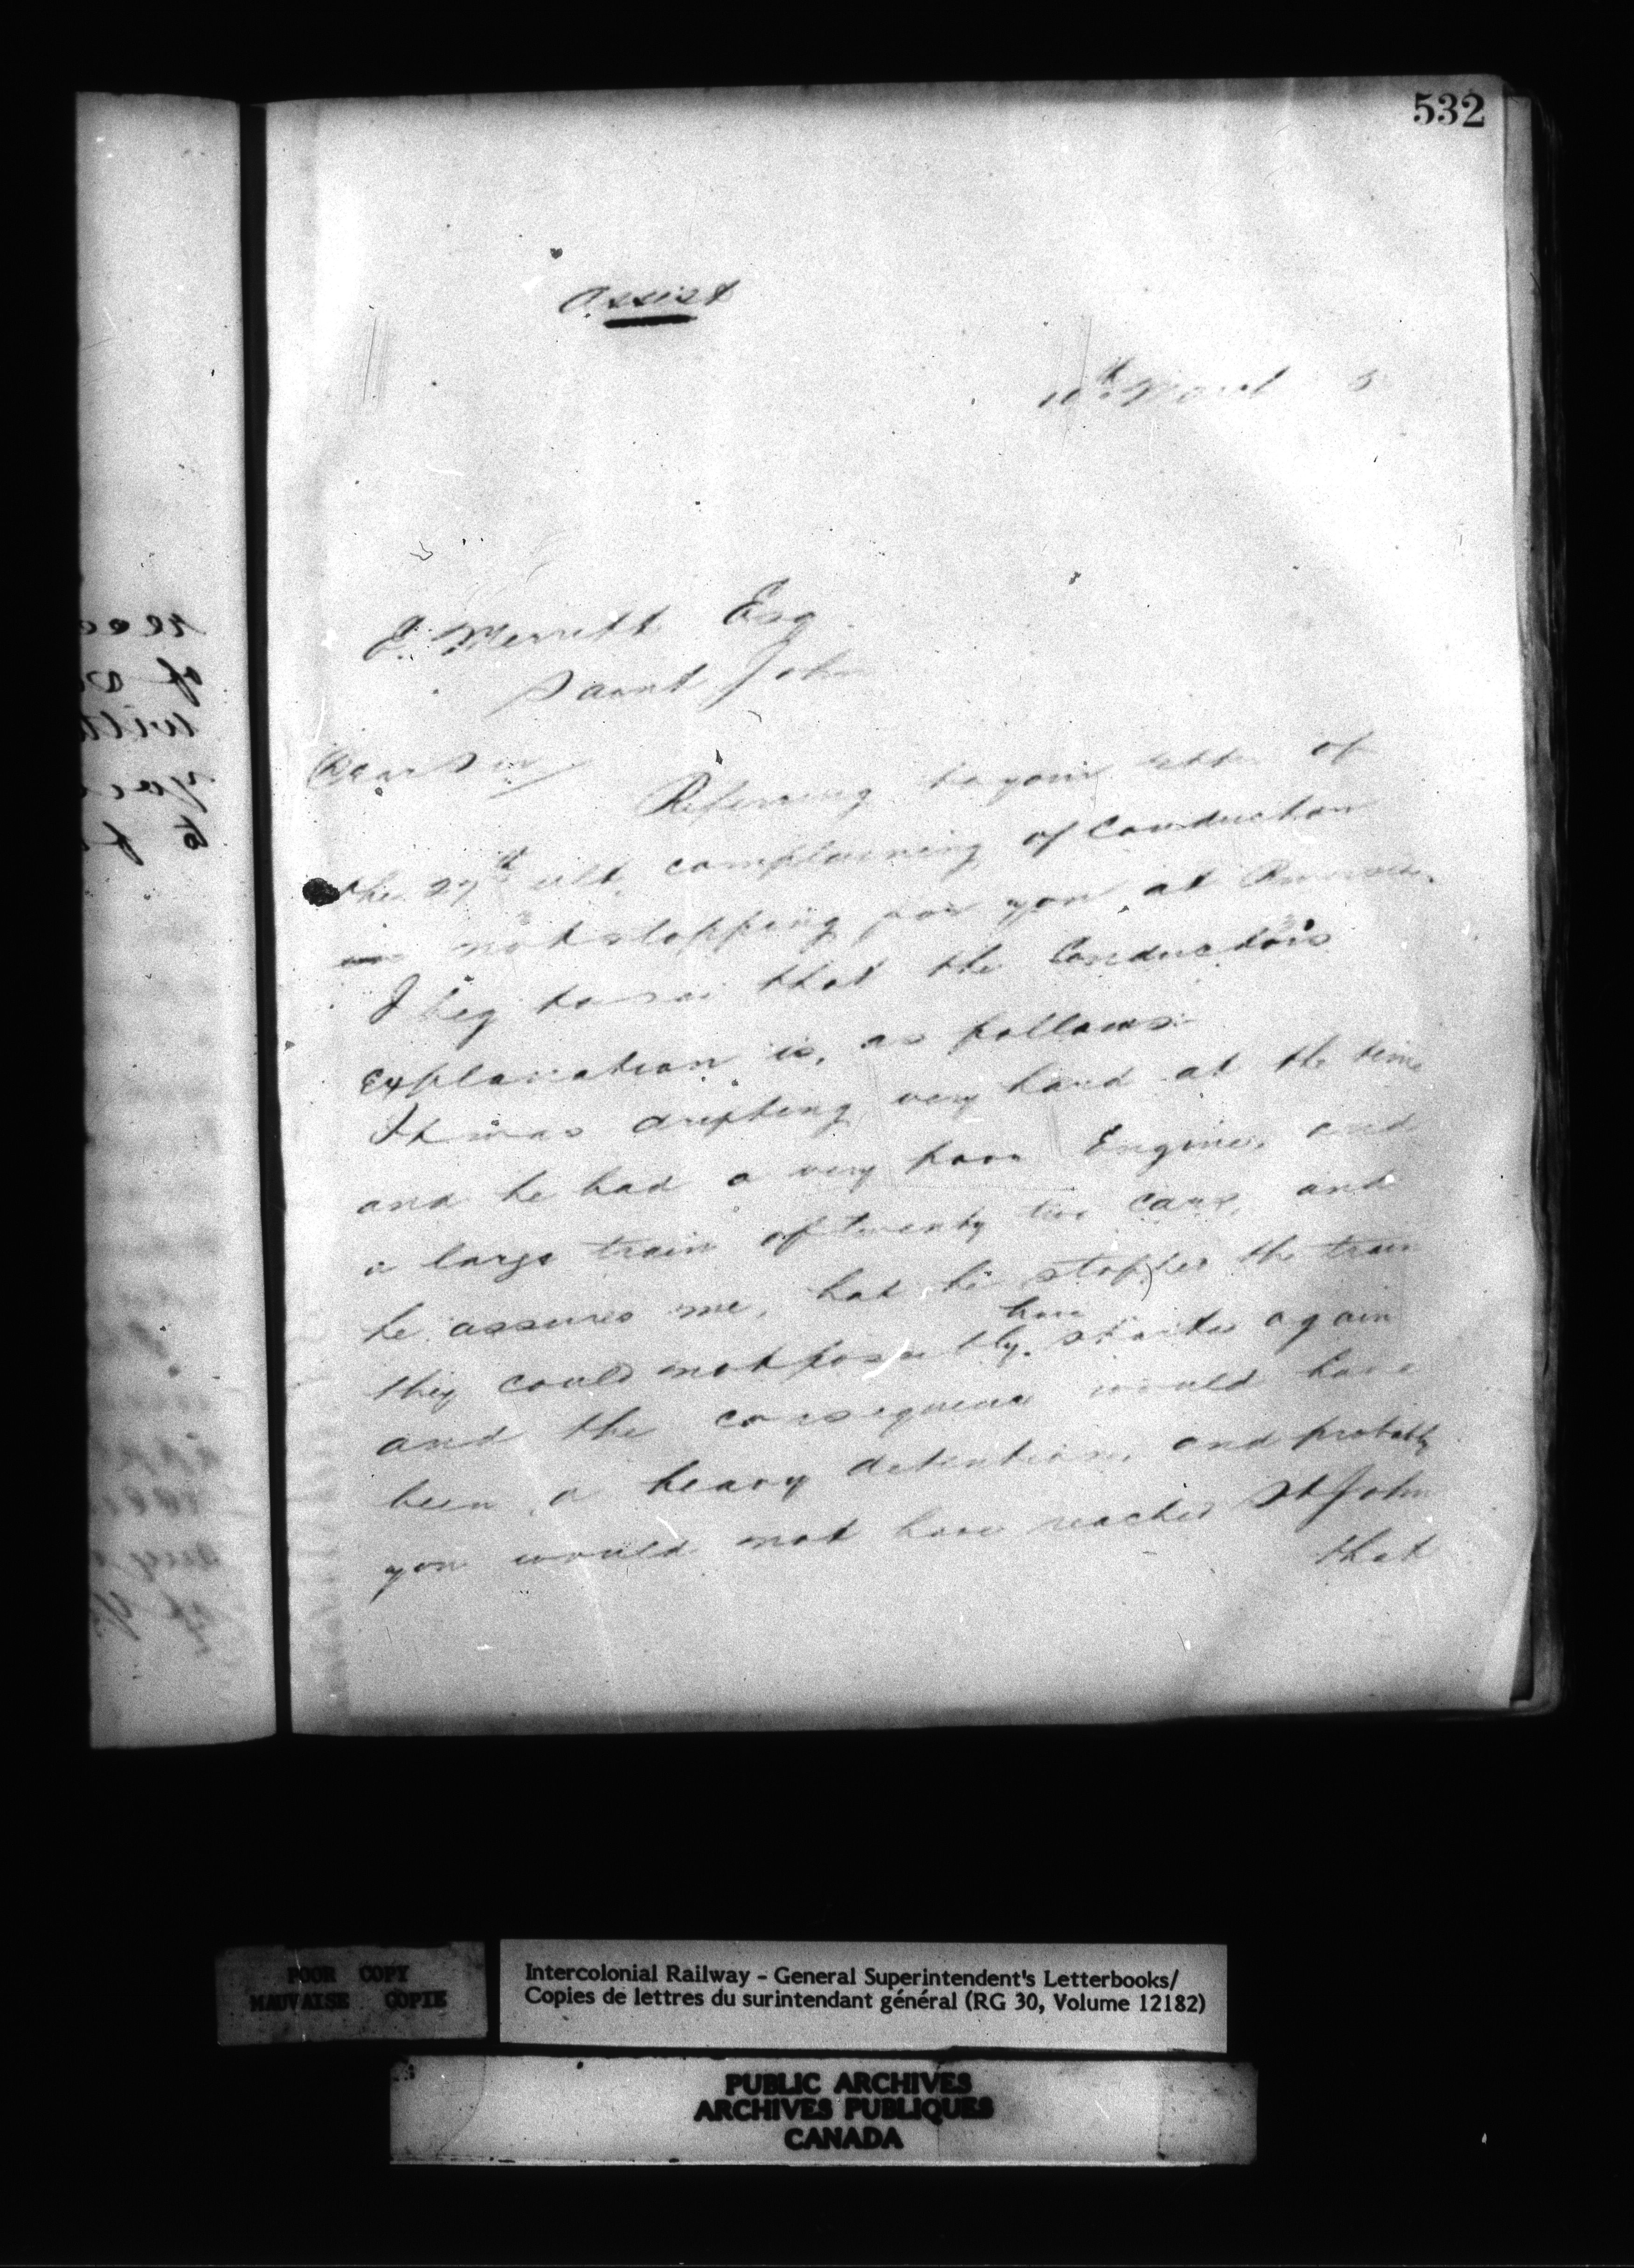 532
Assist
10th March 5
E. Merritt Esq
Saint John
Dear Sir
Referring to your letter of
the 27th ult. complaining of Conductor
not stopping for you at
I beg to say that the Conductor's
Explanation is, as follows:-
It was drifting very hard at the time
and he had a very poor Engine, and
a large train of twenty two cars, and
he assures me, had he stopped the train
they could not possibly have started again
and the consequence would have
been a heavy detention, and probably
you would not have reached St John
that
POOR COPY
MAUVAISE COPIE
Intercolonial Railway - General Superintendent's Letterbooks/
Copies de lettres du surintendant général (RG 30, Volume 12182)
PUBLIC ARCHIVES
ARCHIVES PUBLIQUES
CANADA